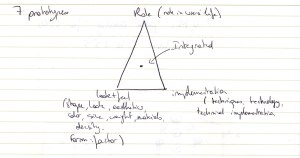 7 prototypes
Role (role in user's life)
Integrated
look + feel
implementation
(shape, look, aesthetics,
(techniques, technology,
color, size, weight, materials,
technical implementation
density.
form factor)